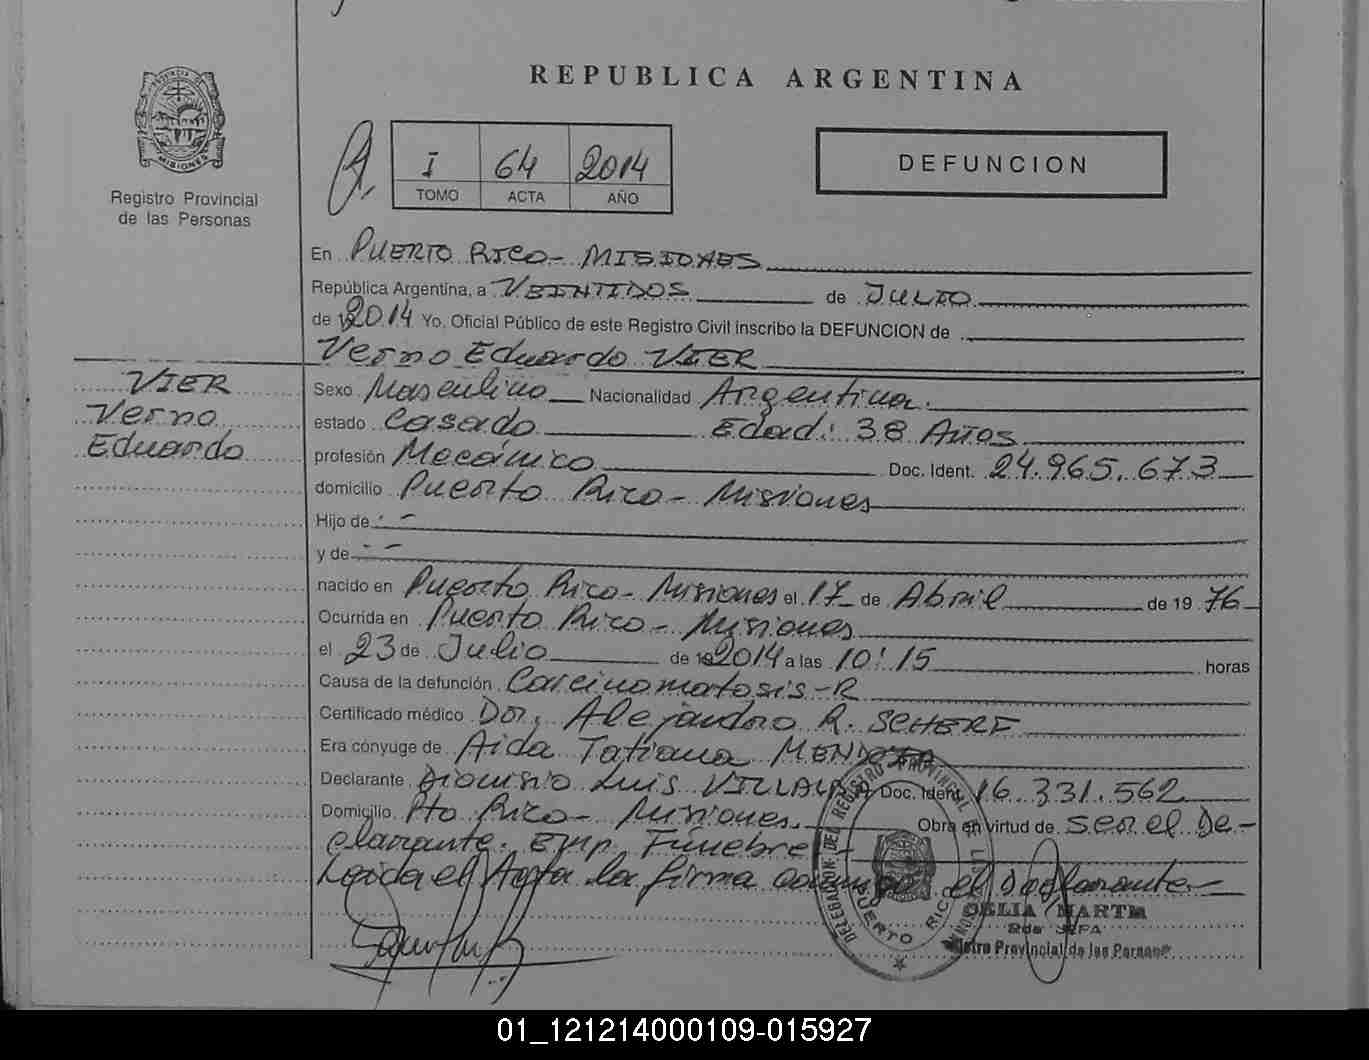 REPUBLICA ARGENTINA
PROVINCIA DE MISIONES
Registro Provincial
de las Personas
I 64 2014
TOMO ACTA AÑO
DEFUNCION
En PUERTO RICO - MISIONES
República Argentina, a VEINTIDOS de JULIO
de 2014 Yo, Oficial Público de este Registro Civil inscribo la DEFUNCION de
Verno Eduardo VIER
VIER
Verno
Eduardo
Sexo Masculino Nacionalidad Argentina.
estado Casado Edad: 38 Años
profesión Mecánico Doc. Ident. 24.965.673
domicilio Puerto Rico - Misiones
Hijo de - -
y de - -
nacido en Puerto Rico - Misiones el 17 de Abril de 19 76
Ocurrida en Puerto Rico - Misiones
el 23 de Julio de 2014 a las 10:15 horas
Causa de la defunción Carcinomatosis - R
Certificado médico Dr. Alejandro R. SCHERF
Era cónyuge de Aida Tatiana MENDOZA
Declarante Dionisio Luis VILLALBA Doc. Ident. 16.331.562
Domicilio Pto Rico - Misiones. Obra en virtud de ser el De-
clarante. Emp. Fúnebre -
Leida el Acta la firma conmigo el Declarante -
DELEGACION DEL REGISTRO PROVINCIAL DE LAS PERSONAS
PUERTO RICO
MARTIN
JEFA
Registro Provincial de las Personas
01_121214000109-015927